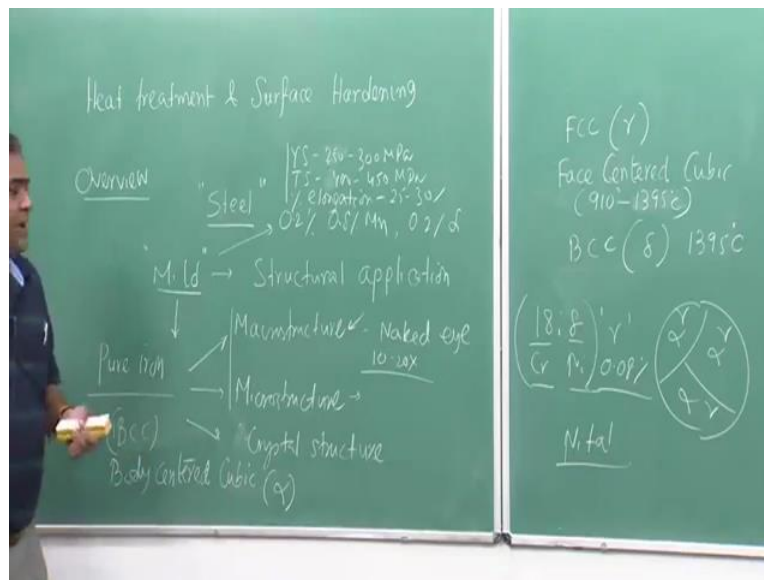 Heat treatment & Surface Hardening
Overview
"Steel"
YS - 250 - 300 MPa
TS - 400 - 450 MPa
% elongation - 25-30%
0.2% 0.8% Mn, 0.2%
"Mild" → Structural application
Pure iron
Macrostructure - Naked eye
10-20X
Microstructure →
(BCC)
Crystal structure
Body Centered Cubic (α)
FCC (γ)
Face Centered Cubic
(910° - 1395°C)
BCC (δ) 1395°C
(18:8 'γ'
Cr Ni 0.08%
α γ
α γ
α γ
Nital